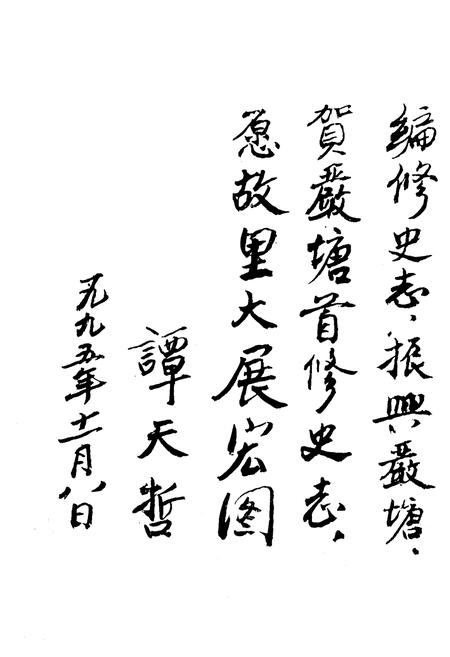 编修史志，振興嚴塘，
賀嚴塘首修史志，
愿故里大展宏图
譚天哲
一九九五年十一月八日